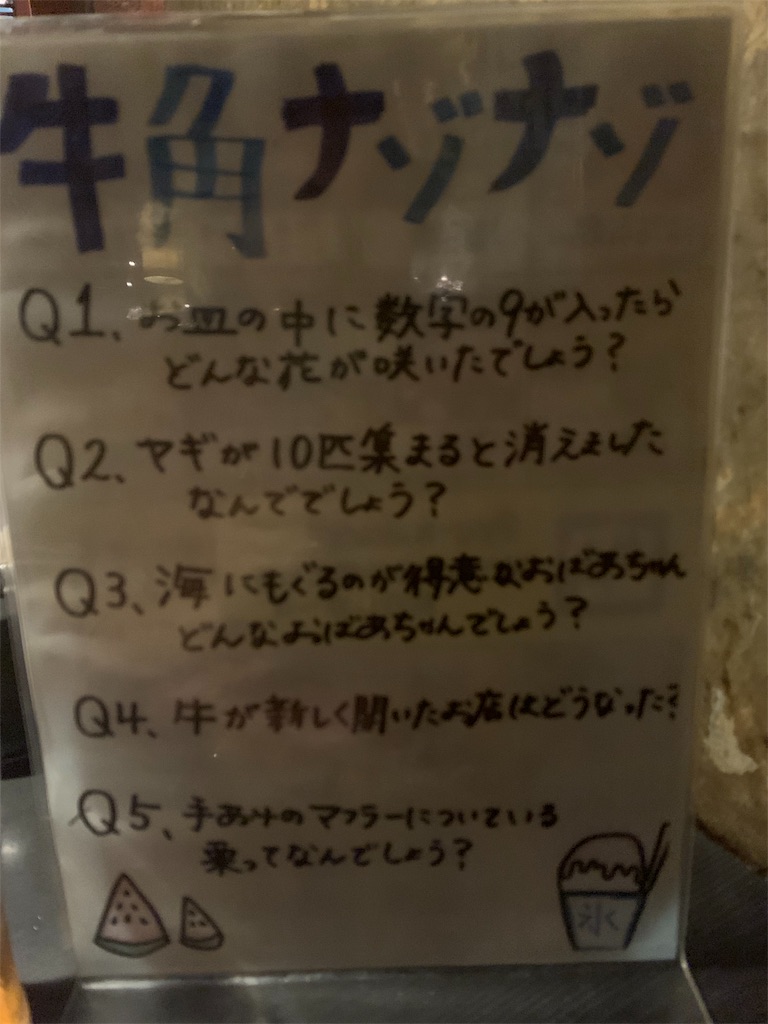 牛角ナゾナゾ
Q1、お皿の中に数字の9が入ったら
どんな花が咲いたでしょう?
Q2、ヤギが10匹集まると消えました
なんででしょう?
Q3、海にもぐるのが得意なおばあちゃん
どんなおばあちゃんでしょう?
Q4、牛が新しく開いたお店はどうなった?
Q5、手あみのマフラーについている
栗ってなんでしょう?
氷